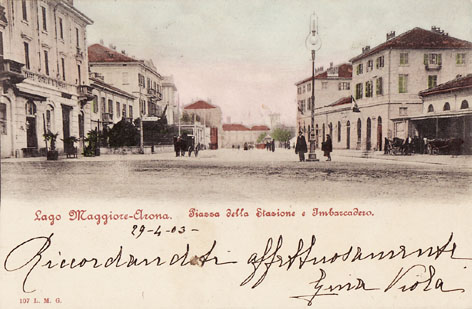 Lago Maggiore-Arona. Piazza della Stazione e Imbarcadero.
29-4-03-
Ricordandoti affettuosamente
Gina Viola
107 L. M. G.